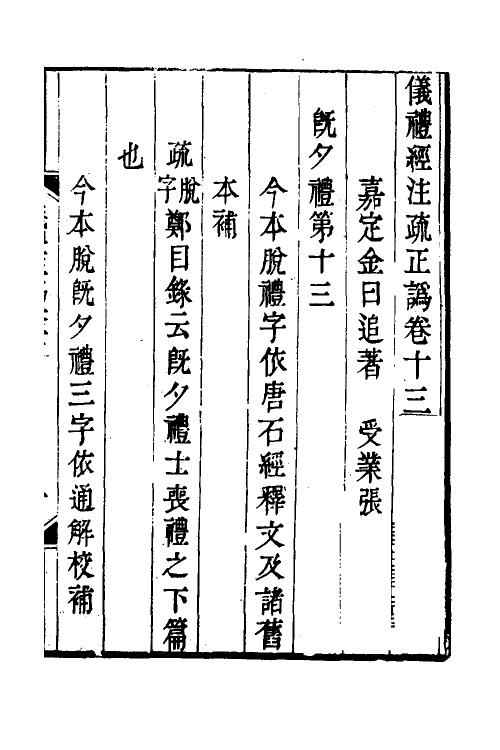 儀禮經注疏正譌卷十三
嘉定金曰追著　受業張
旣夕禮第十三
今本脫禮字依唐石經釋文及諸舊
本補
疏脫字鄭目錄云旣夕禮士喪禮之下篇
也
今本脫旣夕禮三字依通解校補